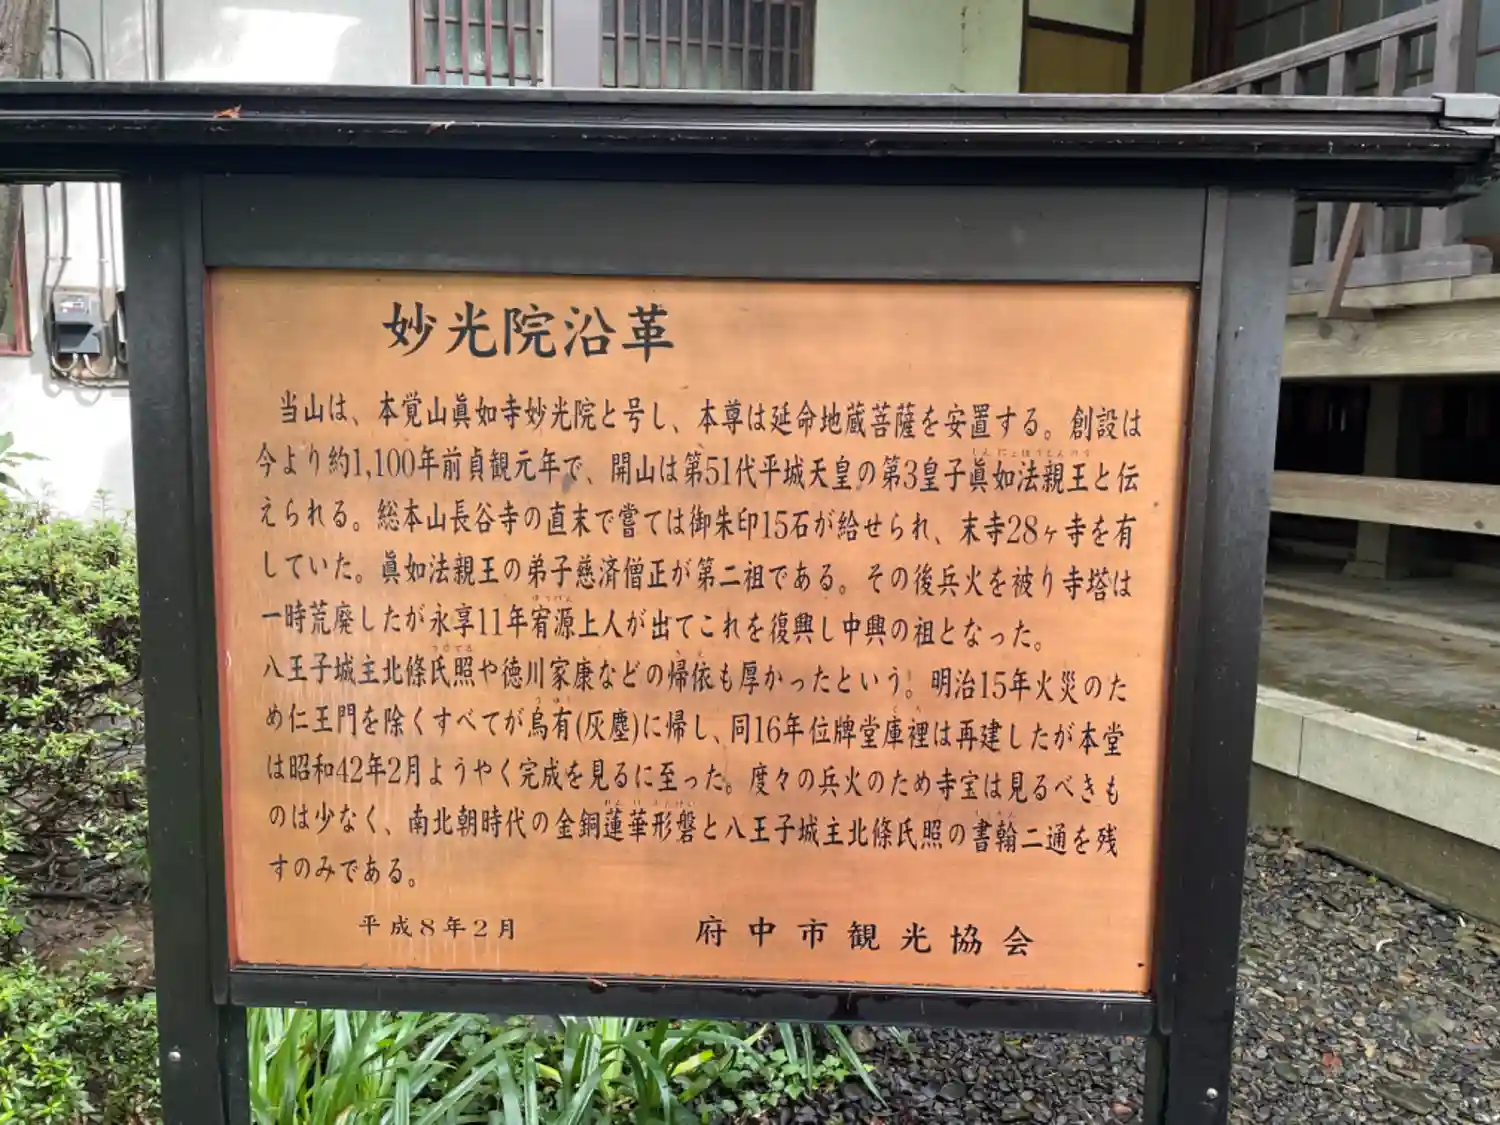 妙光院沿革
当山は、本覚山眞如寺妙光院と号し、本尊は延命地蔵菩薩を安置する。創設は
今より約1,100年前貞観元年で、開山は第51代平城天皇の第3皇子眞如法親王と伝
えられる。総本山長谷寺の直末で嘗ては御朱印15石が給せられ、末寺28ヶ寺を有
していた。眞如法親王の弟子慈済僧正が第二祖である。その後兵火を被り寺塔は
一時荒廃したが永享11年宥源上人が出てこれを復興し中興の祖となった。
八王子城主北條氏照や徳川家康などの帰依も厚かったという。明治15年火災のた
め仁王門を除くすべてが烏有(灰塵)に帰し、同16年位牌堂庫裡は再建したが本堂
は昭和42年2月ようやく完成を見るに至った。度々の兵火のため寺宝は見るべきも
のは少なく、南北朝時代の金銅蓮華形磐と八王子城主北條氏照の書翰二通を残
すのみである。
平成8年2月 府中市観光協会